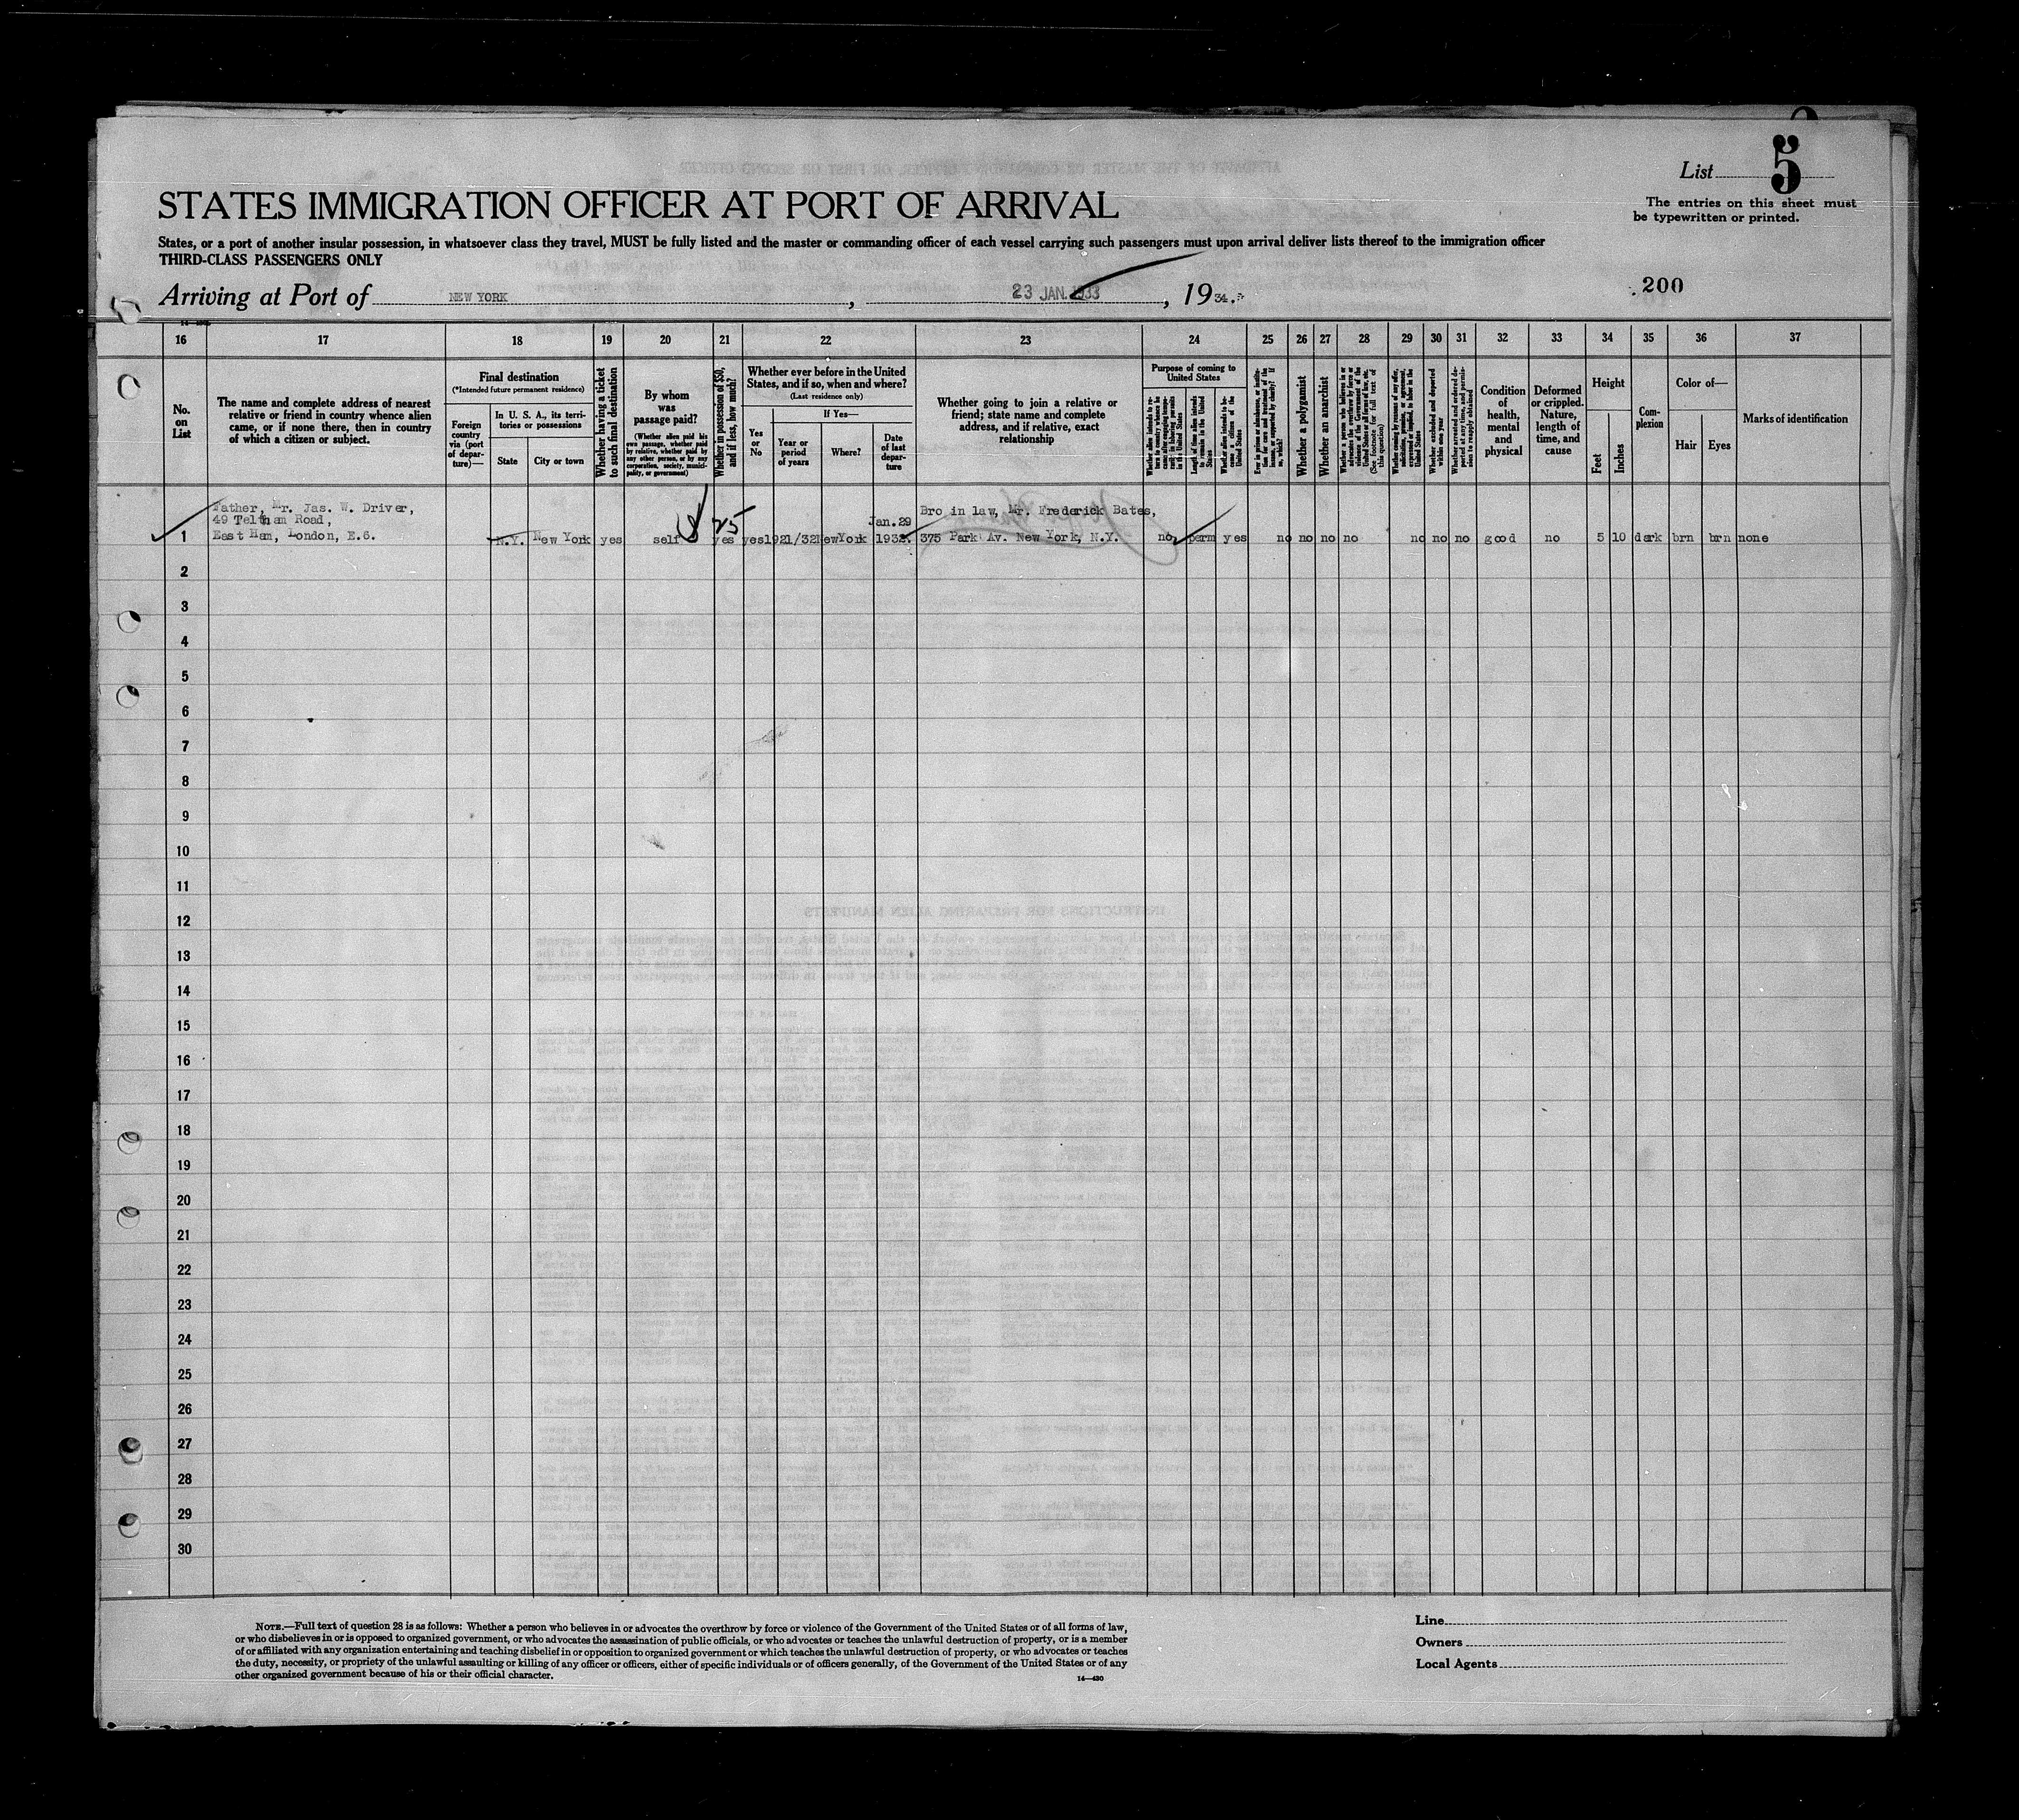 List 5
The entries on this sheet must
be typewritten or printed.
STATES IMMIGRATION OFFICER AT PORT OF ARRIVAL
States, or a port of another insular possession, in whatsoever class they travel, MUST be fully listed and the master or commanding officer of each vessel carrying such passengers must upon arrival deliver lists thereof to the immigration officer
THIRD-CLASS PASSENGERS ONLY
200
Arriving at Port of NEW YORK, 23 JAN. 1933, 1934.
16 17 18 19 20 21 22 23 24 25 26 27 28 29 30 31 32 33 34 35 36 37
No.
on
List
The name and complete address of nearest
relative or friend in country whence alien
came, or if none there, then in country
of which a citizen or subject.
Final destination
(*Intended future permanent residence)
Foreign
country
via (port
of depar-
ture)—
In U. S. A., its terri-
tories or possessions
State
City or town
Whether having a ticket
to such final destination
By whom
was
passage paid?
(Whether alien paid his
own passage, whether paid
by relative, whether paid by
any other person, or by any
corporation, society, munici-
pality, or government)
Whether in possession of $50,
and if less, how much?
Whether ever before in the United
States, and if so, when and where?
(Last residence only)
Yes
or
No
If Yes—
Year or
period
of years
Where?
Date
of last
depar-
ture
Whether going to join a relative or
friend; state name and complete
address, and if relative, exact
relationship
Purpose of coming to
United States
Length of time alien intends
to remain in the United
States
Whether alien intends to be-
come a citizen of the
United States
Whether a polygamist
Whether an anarchist
Condition
of
health,
mental
and
physical
Deformed
or crippled.
Nature,
length of
time, and
cause
Height
Feet
Inches
Com-
plexion
Color of—
Hair
Eyes
Marks of identification
Father, Mr. Jas. W. Driver,
49 Teltham Road,
East Ham, London, E.6.
$ 25
Jan. 29
Bro in law, Mr. Frederick Bates,
1 N.Y. New York yes self yes yes 1921/32 NewYork 1932 375 Park Av. New York, N.Y. no perm yes no no no no no no no good no 5 10 dark brn brn none
2
3
4
5
6
7
8
9
10
11
12
13
14
15
16
17
18
19
20
21
22
23
24
25
26
27
28
29
30
NOTE.—Full text of question 28 is as follows: Whether a person who believes in or advocates the overthrow by force or violence of the Government of the United States or of all forms of law,
or who disbelieves in or is opposed to organized government, or who advocates the assassination of public officials, or who advocates or teaches the unlawful destruction of property, or is a member
of or affiliated with any organization entertaining and teaching disbelief in or opposition to organized government or which teaches the unlawful destruction of property, or who advocates or teaches
the duty, necessity, or propriety of the unlawful assaulting or killing of any officer or officers, either of specific individuals or of officers generally, of the Government of the United States or of any
other organized government because of his or their official character.
14—430
Line
Owners
Local Agents